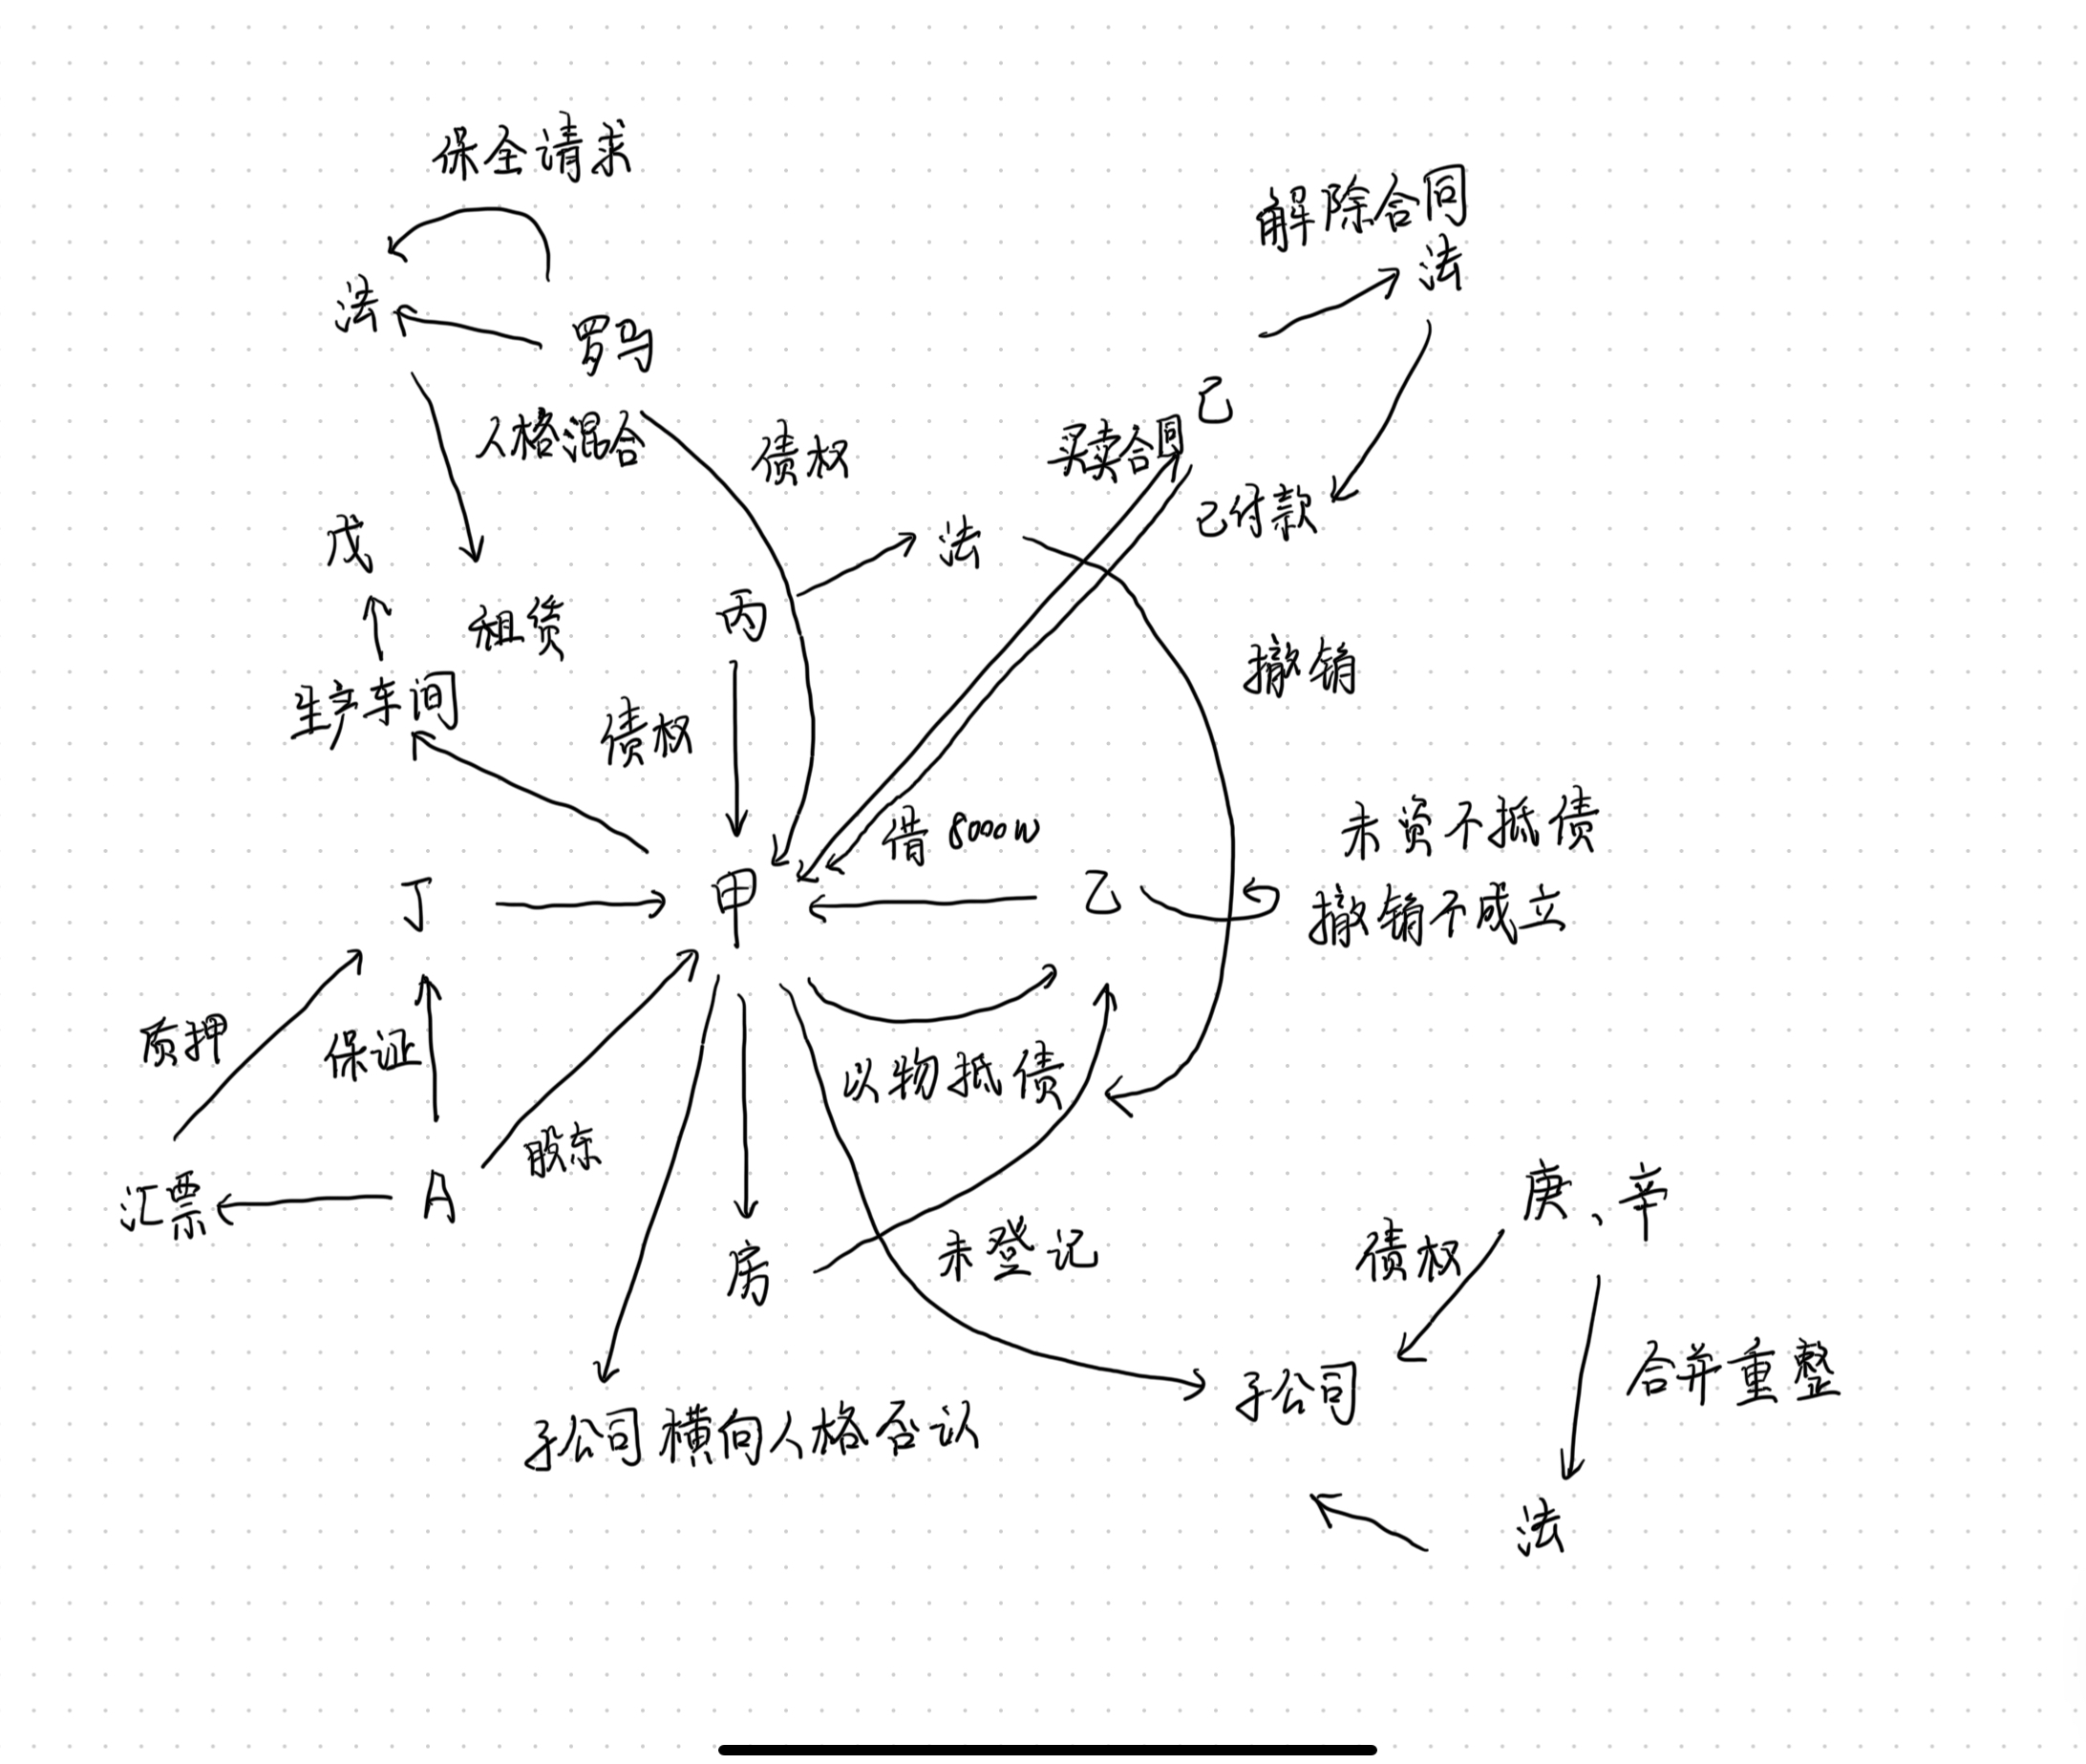 保全请求
解除合同
法
法
罗马
己
人格混合
债权
买卖合同
已付款
戊
法
租赁
丙
撤销
生产车间
债权
借8000W
未资不抵债
丁
甲
乙
撤销不成立
质押
保证
以物抵债
股东
汇票
A
庚、辛
房
未登记
债权
子公司
合并重整
子公司横向人格否认
法